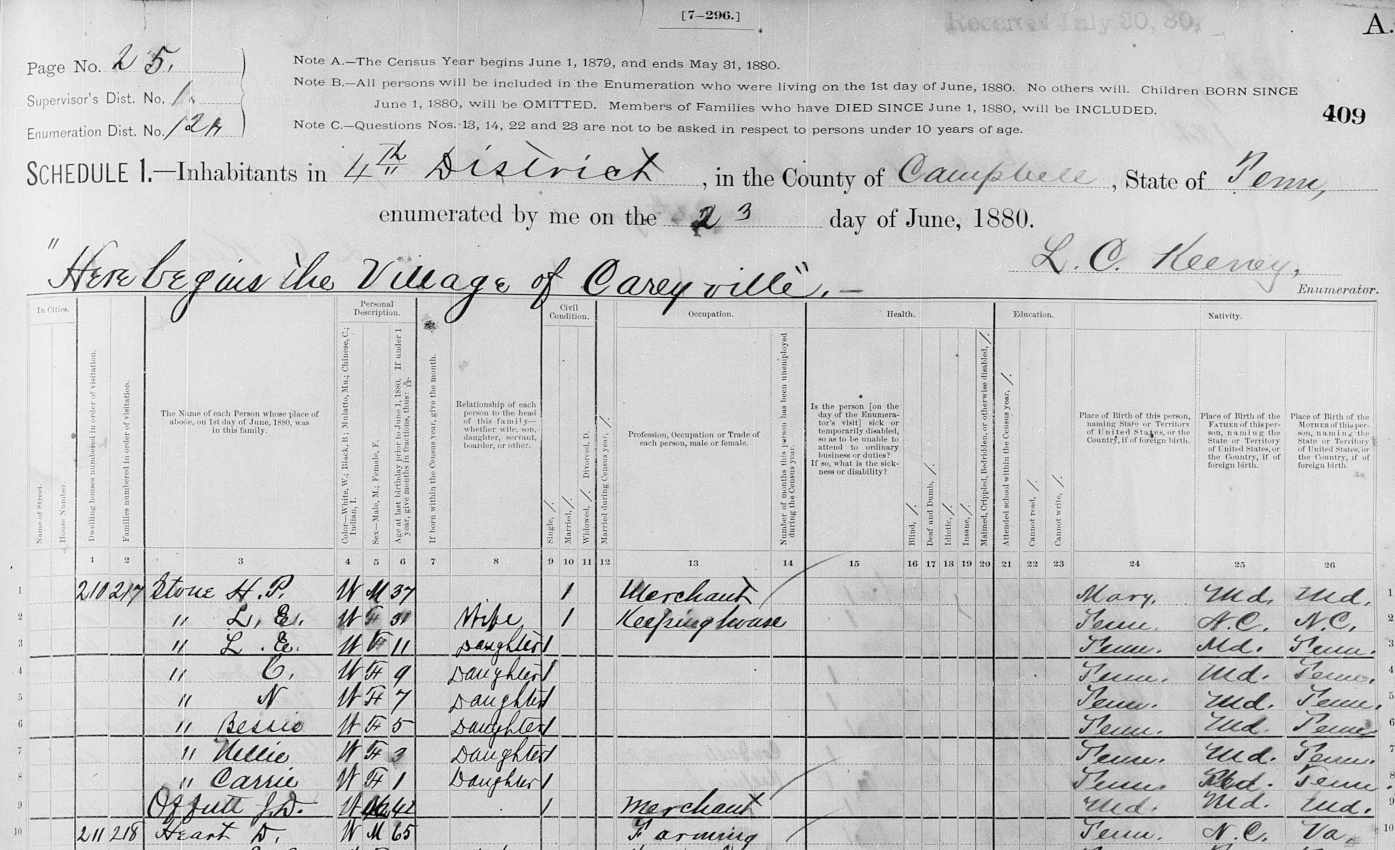 [7–296.]
Received July 30, 80.
A.
Page No. 25.
Supervisor's Dist. No. 1.
Enumeration Dist. No. 12
Note A.—The Census Year begins June 1, 1879, and ends May 31, 1880.
Note B.—All persons will be included in the Enumeration who were living on the 1st day of June, 1880. No others will. Children BORN SINCE
June 1, 1880, will be OMITTED. Members of Families who have DIED SINCE June 1, 1880, will be INCLUDED.
Note C.—Questions Nos. 13, 14, 22 and 23 are not to be asked in respect to persons under 10 years of age.
409
SCHEDULE 1.—Inhabitants in 4th District, in the County of Campbell, State of Tenn,
enumerated by me on the 23 day of June, 1880.
L. C. Keeney,
Enumerator.
"Here begins the Village of Careyville".—
In Cities.
Name of Street.
House Number.
Dwelling houses numbered in order of visitation.
Families numbered in order of visitation.
The Name of each Person whose place of
abode, on 1st day of June, 1880, was
in this family.
Personal
Description.
Color—White, W.; Black, B.; Mulatto, Mu.; Chinese, C.;
Indian, I.
Sex—Male, M.; Female, F.
Age at last birthday prior to June 1, 1880. If under 1
year, give months in fractions, thus:
If born within the Census year, give the month.
Relationship of each
person to the head
of this family—
whether wife, son,
daughter, servant,
boarder, or other.
Civil
Condition.
Single, /.
Married, /.
Widowed, /. Divorced, D.
Married during Census year, /.
Occupation.
Profession, Occupation or Trade of
each person, male or female.
Number of months this person has been unemployed
during the Census year.
Health.
Is the person [on the
day of the Enumera-
tor's visit] sick or
temporarily disabled,
so as to be unable to
attend to ordinary
business or duties?
If so, what is the sick-
ness or disability?
Blind, /.
Deaf and Dumb, /.
Idiotic, /.
Insane, /.
Maimed, Crippled, Bedridden, or otherwise disabled, /.
Education.
Attended school within the Census year, /.
Cannot read, /.
Cannot write, /.
Nativity.
Place of Birth of this person,
naming State or Territory
of United States, or the
Country, if of foreign birth.
Place of Birth of the
FATHER of this per-
son, naming the
State or Territory
of United States, or
the Country, if of
foreign birth.
Place of Birth of the
MOTHER of this per-
son, naming the
State or Territory
of United States, or
the Country, if of
foreign birth.
1 2 3 4 5 6 7 8 9 10 11 12 13 14 15 16 17 18 19 20 21 22 23 24 25 26
1 210 217 Stone H. P. W M 37 1 Merchant Mary. Md. Md. 1
2 " L. E. W F 31 Wife 1 Keeping house Tenn. N.C. N.C. 2
3 " L. E. W F 11 Daughter 1 Tenn. Md. Tenn. 3
4 " C. W F 9 Daughter 1 Tenn. Md. Tenn. 4
5 " N W F 7 Daughter 1 Tenn. Md. Tenn. 5
6 " Bessie W F 5 Daughter 1 Tenn. Md. Tenn. 6
7 " Nellie W F 3 Daughter 1 Tenn. Md. Tenn. 7
8 " Carrie W F 1 Daughter 1 Tenn. Md. Tenn. 8
9 Offutt J. D. W 42 1 Merchant Md. Md. Md. 9
10 211 218 Heart D. W M 65 Farming Tenn. N.C. Va. 10